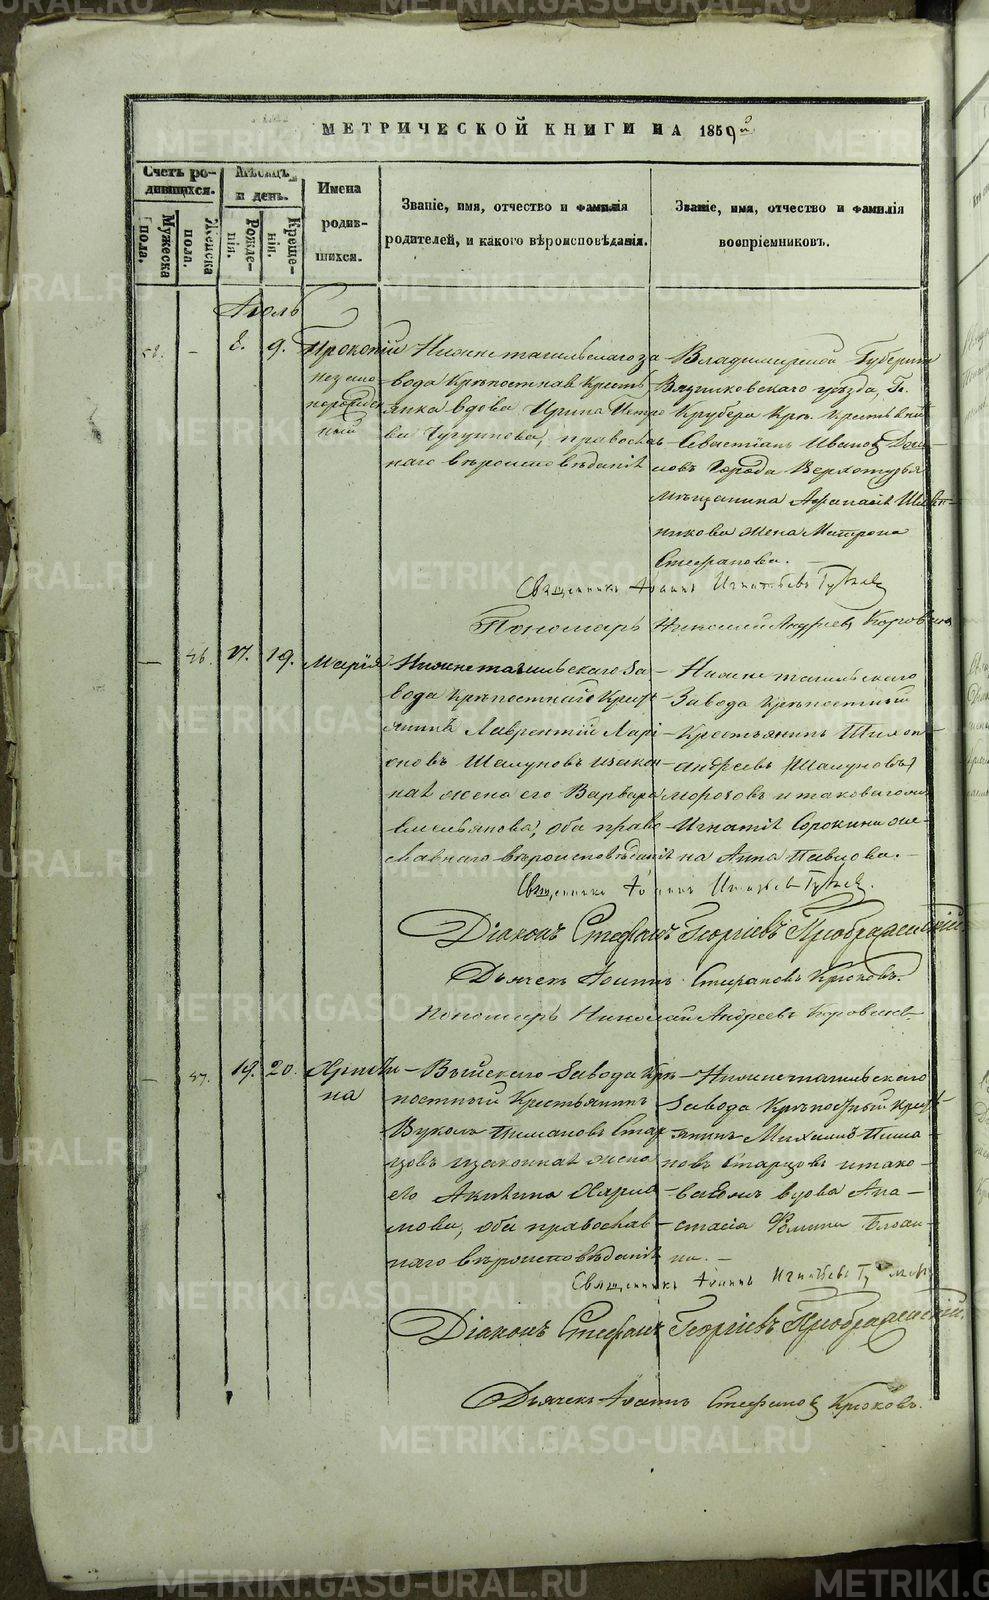 МЕТРИЧЕСКОЙ КНИГИ НА 1859й
Счетъ ро-
дившихся.
Мужеска
пола.
Женска
пола.
Мѣсяцъ
и день.
Рожде-
нія.
Креще-
нія.
Имена
родив-
шихся.
Званіе, имя, отчество и фамилія
родителей, и какого вѣроисповѣданія.
Званіе, имя, отчество и фамилія
воспріемниковъ.
Іюль
58. – 8. 9. Прокопій
незаконо
порожден
ный
Нижнетагильскаго за
вода Крѣпостная Кресть
янка вдова Ирина Петро
ва Чугункова, православ
наго вѣроисповѣданія
Владимирской Губерніи
Вязниковскаго уѣзда,
Крѣ. Крестьянинъ
Севастіанъ Иванов
новъ города Верхотурья
мѣщанина Афанасія
никова жена Матрона
Стефанова.
Священникъ Іоаннъ Игнатьевъ
Пономарь Николай Андреев
– 46. 17. 19. Марія
Нижнетагильскаго за
вода Крѣпостной Крест
янинъ Лаврентій Ларі
оновъ Шалуновъ и закон
ная жена его Варвара
Емельянова, оба право
славнаго вѣроисповѣданія
Нижнетагильскаго
Завода Крѣпостный
Крестьянинъ
Андреевъ (Шалуновъ)
Морозовъ и таковагоже
Игнатія Сорокина же
на Анна Павлова.
Священникъ Іоаннъ
Діаконъ Стефанъ Георгіевъ Преображенскій
Дьячекъ Іоаннъ Стефановъ Крюковъ.
Пономарь Николай Андреевъ
– 47. 19. 20. Христи
на
Выйскаго Завода Крѣ
постный Крестьянинъ
Вуколъ Пимановъ Стар
цовъ и законная жена
его Акилина Харла
мова, оба православ
наго вѣроисповѣданія
Нижнетагильскаго
Завода Крѣпостный Крест
янинъ Михаилъ Пима
новъ Старцовъ и тако
ваяжъ вдова Ана
стасія Фомина
на.
Священникъ Іоаннъ Игнатьевъ
Діаконъ Стефанъ Георгіевъ Преображенскій.
Дьячекъ Іоаннъ Стефанов Крюковъ.
METRIKI.GASO-URAL.RU